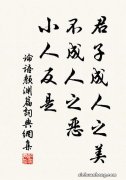 君子成人之美
不成人之恶
小人反是
论语颜渊篇词典网集